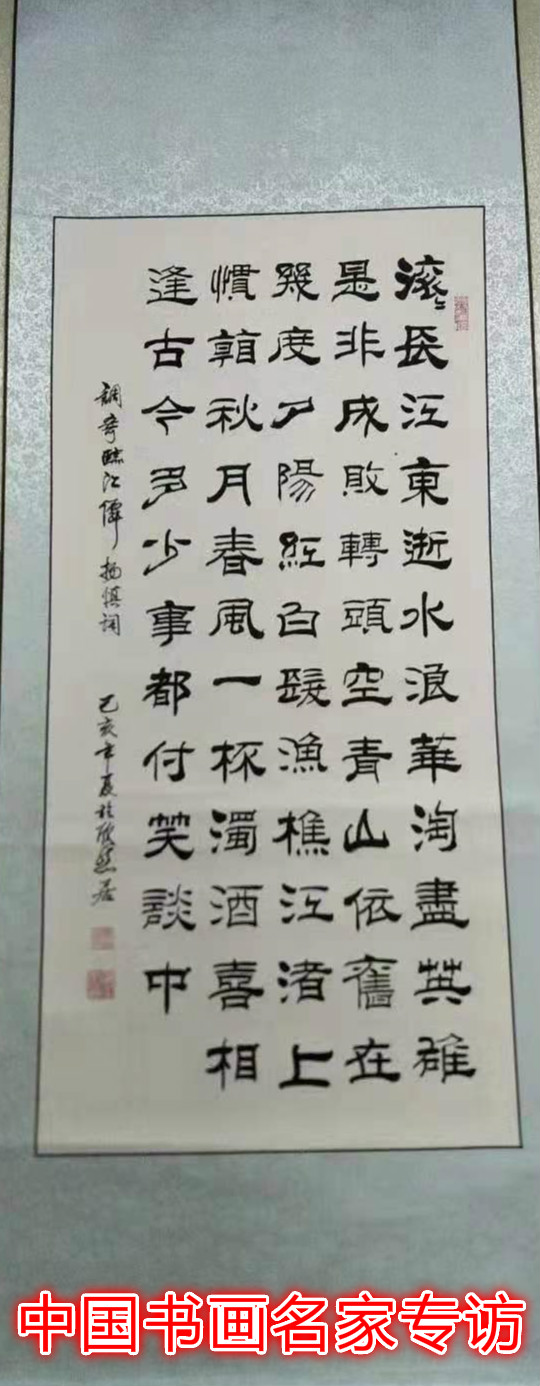 滚〻長江東逝水浪華淘盡英雄
是非成敗轉頭空青山依舊在
幾度夕陽紅白髮漁樵江渚上
慣看秋月春風一杯濁酒喜相
逢古今多少事都付笑談中
調寄臨江僊 楊慎詞 己亥年夏於居
中国书画名家专访